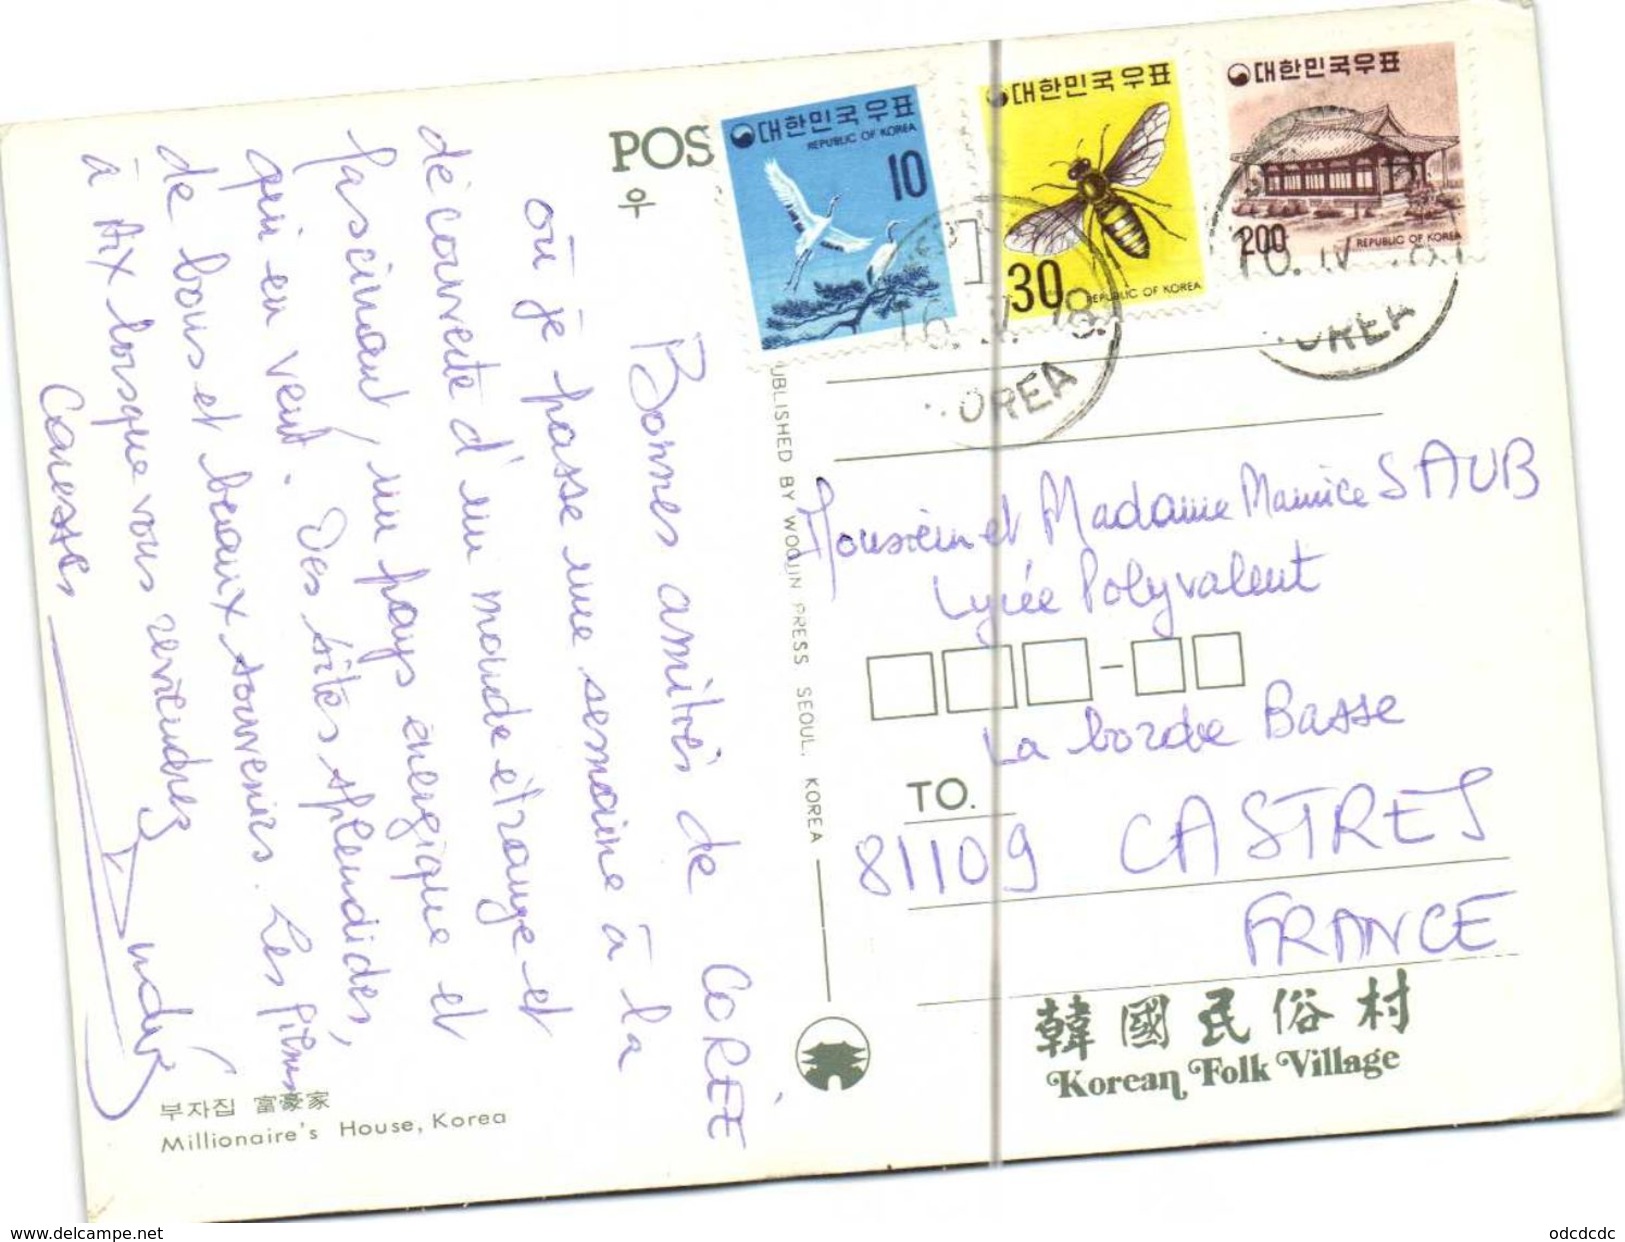 POS
우
대한민국우표
REPUBLIC OF KOREA
10
대한민국우표
30
REPUBLIC OF KOREA
대한민국우표
200
REPUBLIC OF KOREA
OREA
OREA
Bonnes amitiés de CORÉE
où je passe une semaine à la
découverte d'un monde étrange et
fascinant, un pays énergique et
qui en veut. Des sites splendides,
de bons et beaux souvenirs. Les films
à AIX lorsque vous reviendrez
Caresses
André
UBLISHED BY WOOJIN PRESS SEOUL, KOREA
Monsieur et Madame Maurice SAUB
Lycée Polyvalent
La borde Basse
TO.
81109 CASTRES
FRANCE
韓國民俗村
Korean Folk Village
부자집 富豪家
Millionaire's House, Korea
delcampe.net
odcdcdc